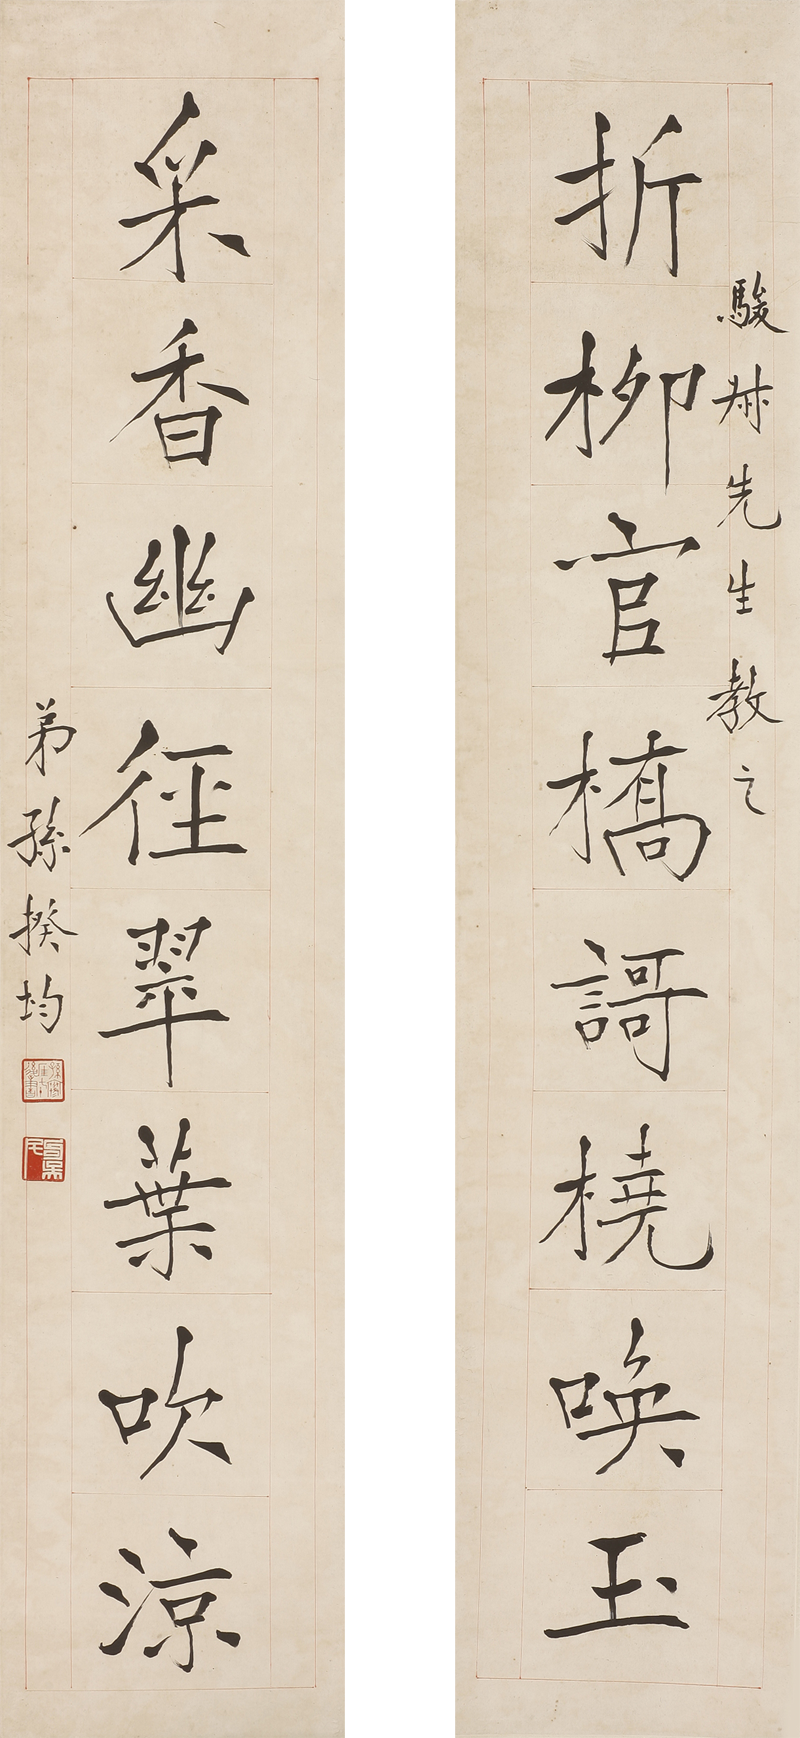 駿叔先生教之
折柳官橋謌橈喚玉
采香幽徑翠葉吹涼
弟孫揆均